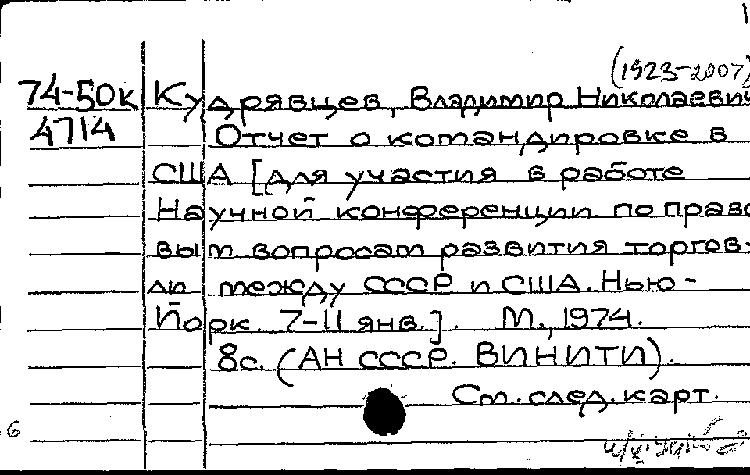 (1923-2007)
74-50к Кудрявцев, Владимир Николаевич
4714 Отчет о командировке в
США [для участия в работе
Научной конференции по право-
вым вопросам развития торгов-
ли между СССР и США. Нью-
Йорк. 7-11 янв.]. М., 1974.
8с. (АН СССР. ВИНИТИ).
См. след. карт.
6